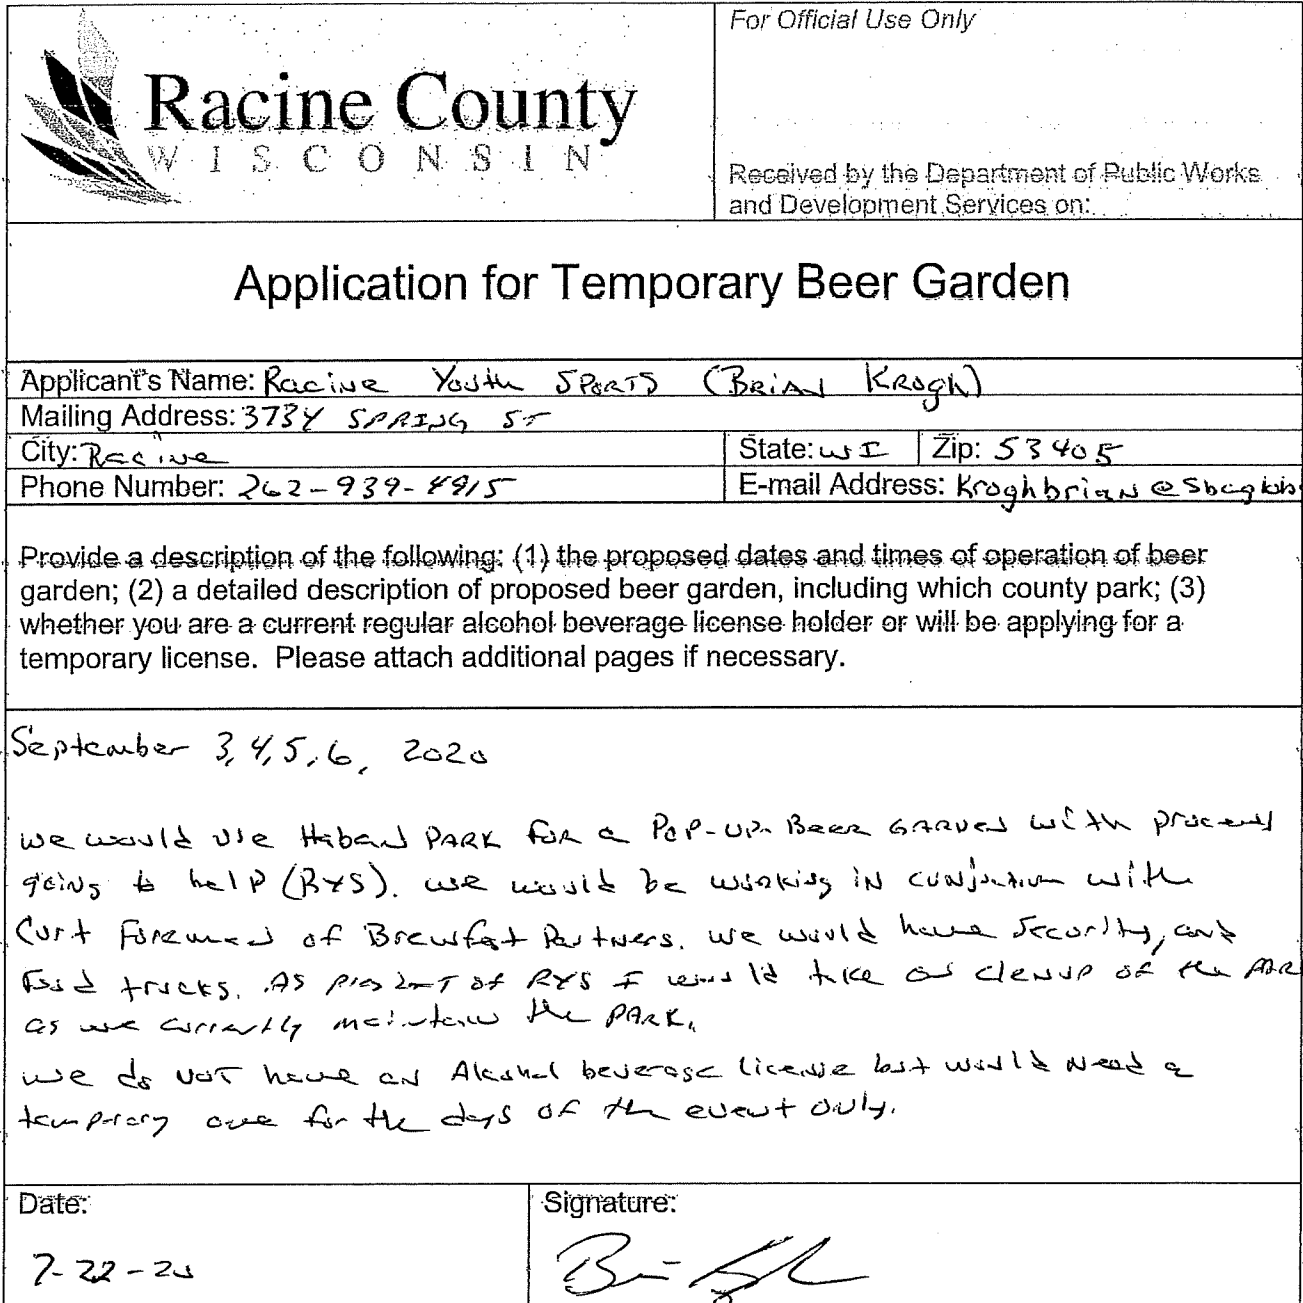 For Official Use Only
Racine County
WISCONSIN
Received by the Department of Public Works
and Development Services on:
Application for Temporary Beer Garden
Applicant's Name: Racine Youth SPORTS (BRIAN KROGH)
Mailing Address: 3734 SPRING ST
City: Racine State: WI Zip: 53405
Phone Number: 262-939-4915 E-mail Address: Kroghbrian@sbcglob
Provide a description of the following: (1) the proposed dates and times of operation of beer
garden; (2) a detailed description of proposed beer garden, including which county park; (3)
whether you are a current regular alcohol beverage license holder or will be applying for a
temporary license. Please attach additional pages if necessary.
September 3, 4, 5, 6, 2020
we would use PARK FOR a POP-UP BEER GARDEN with proceeds
going to help (RYS). we would be working IN conjunction with
Curt Foreman of Brewfest Partners. we would have security, and
food trucks. AS of RYS I would take on clenup of the PAR
as we currently maintain the PARK.
we do NOT have an Alcohol beverage license but would need a
temprary one for the days of the event only.
Date: Signature:
7-22-20 Bri